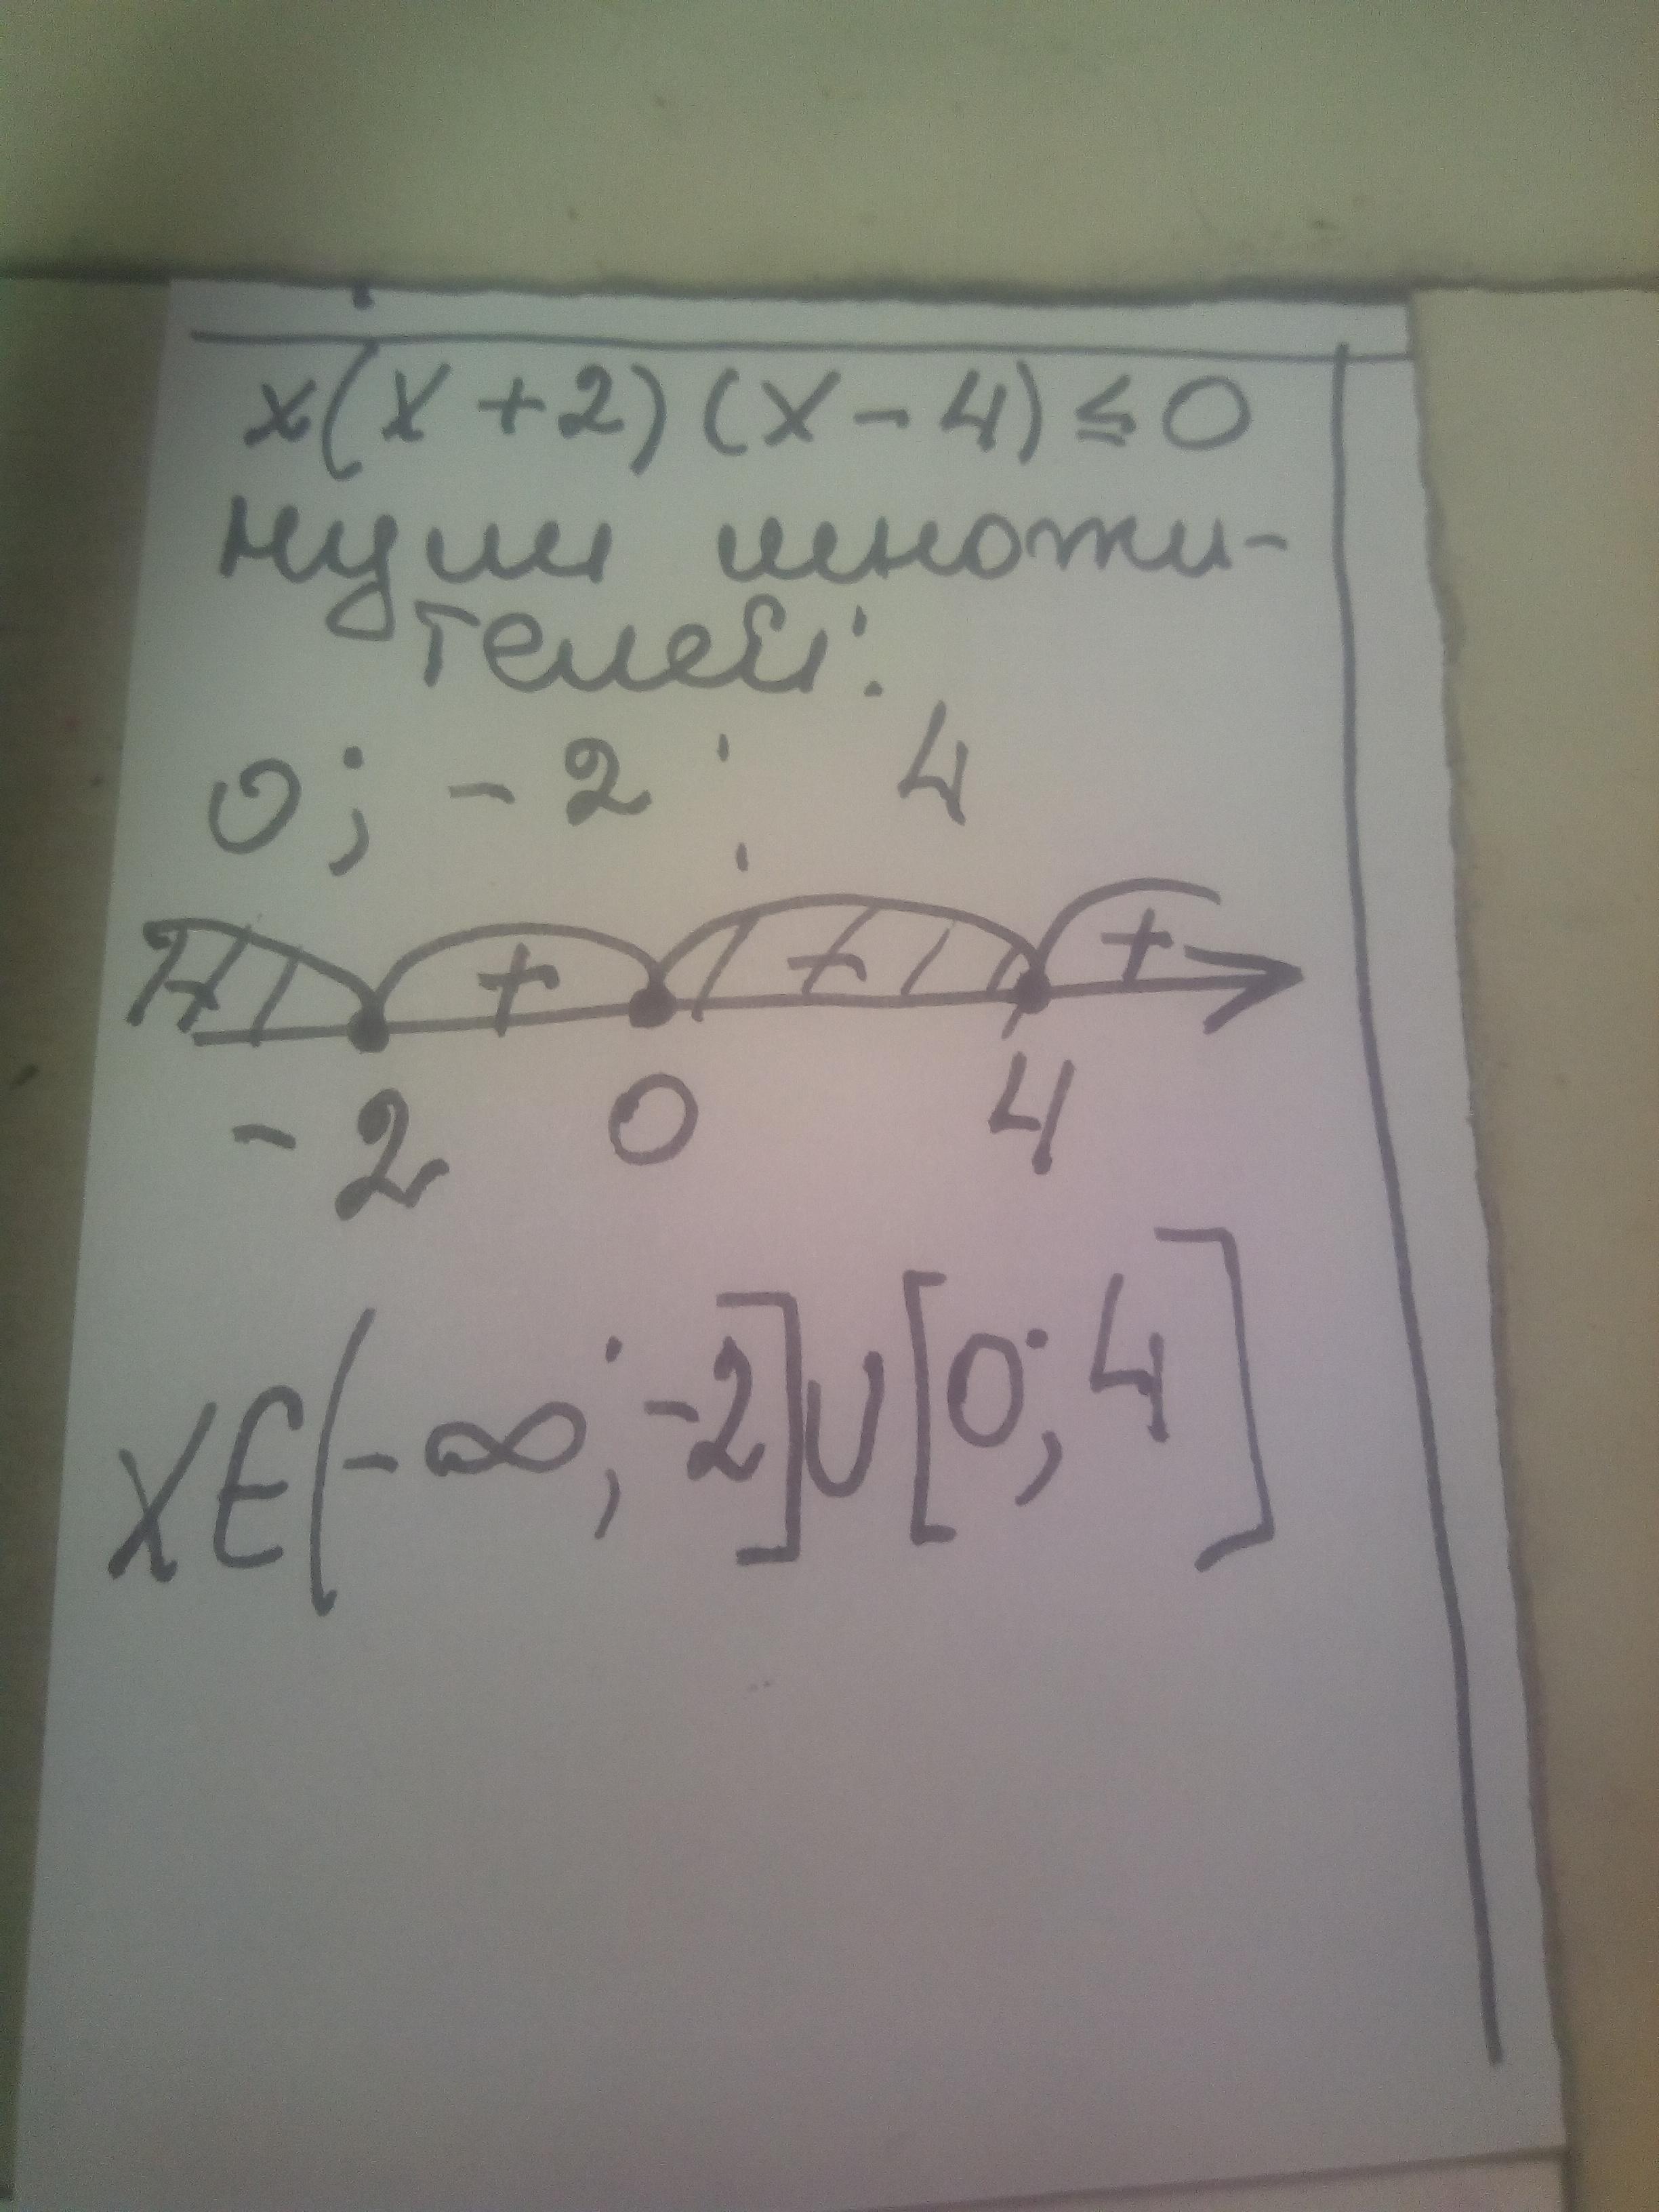 x(x+2)(x-4)≤0
нули множи-
телей:
0; -2; 4
- + - +
-2 0 4
x∈(-∞;-2]∪[0;4]